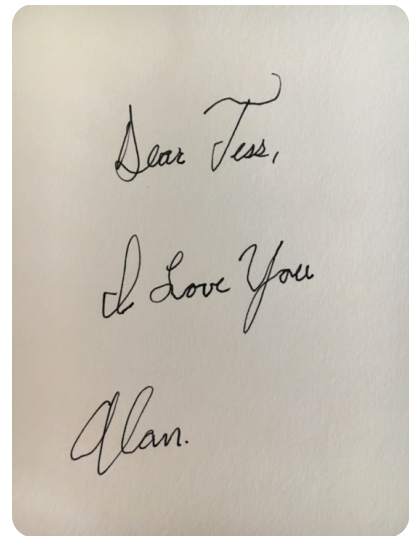 Dear Tess,
I Love You
Alan.